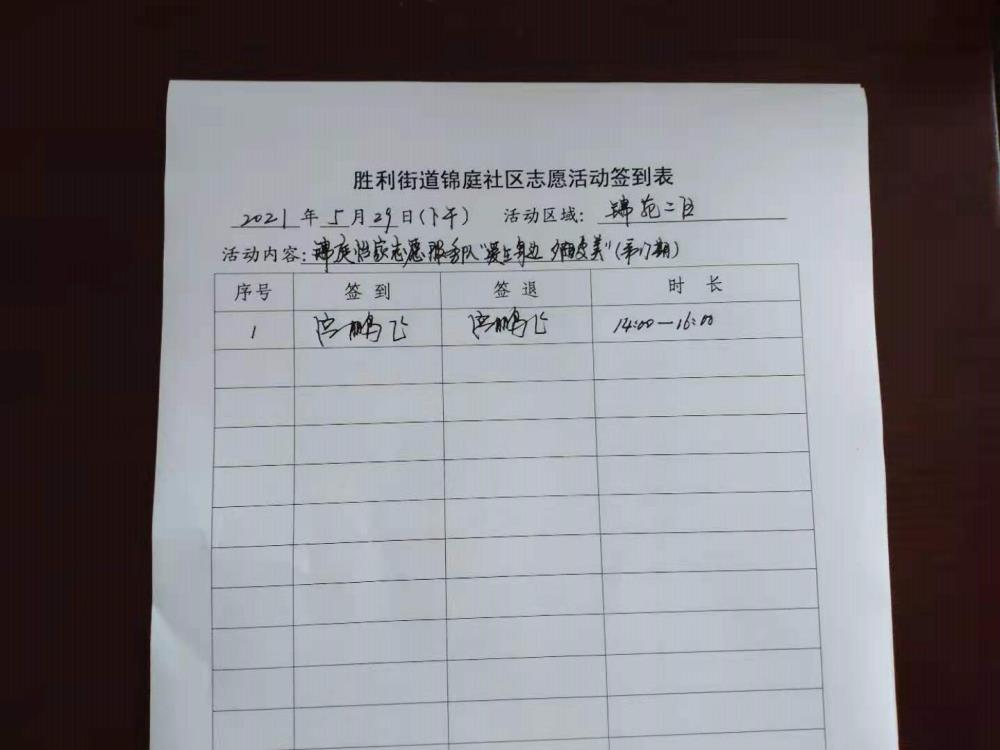 胜利街道锦庭社区志愿活动签到表
2021 年 5 月 29 日(下午) 活动区域: 锦苑二区
活动内容: 锦庭怡家志愿服务队"爱在身边 夕阳更美"(第17期)
序号 签到 签退 时长
1 鹏飞 鹏飞 14:00—16:00